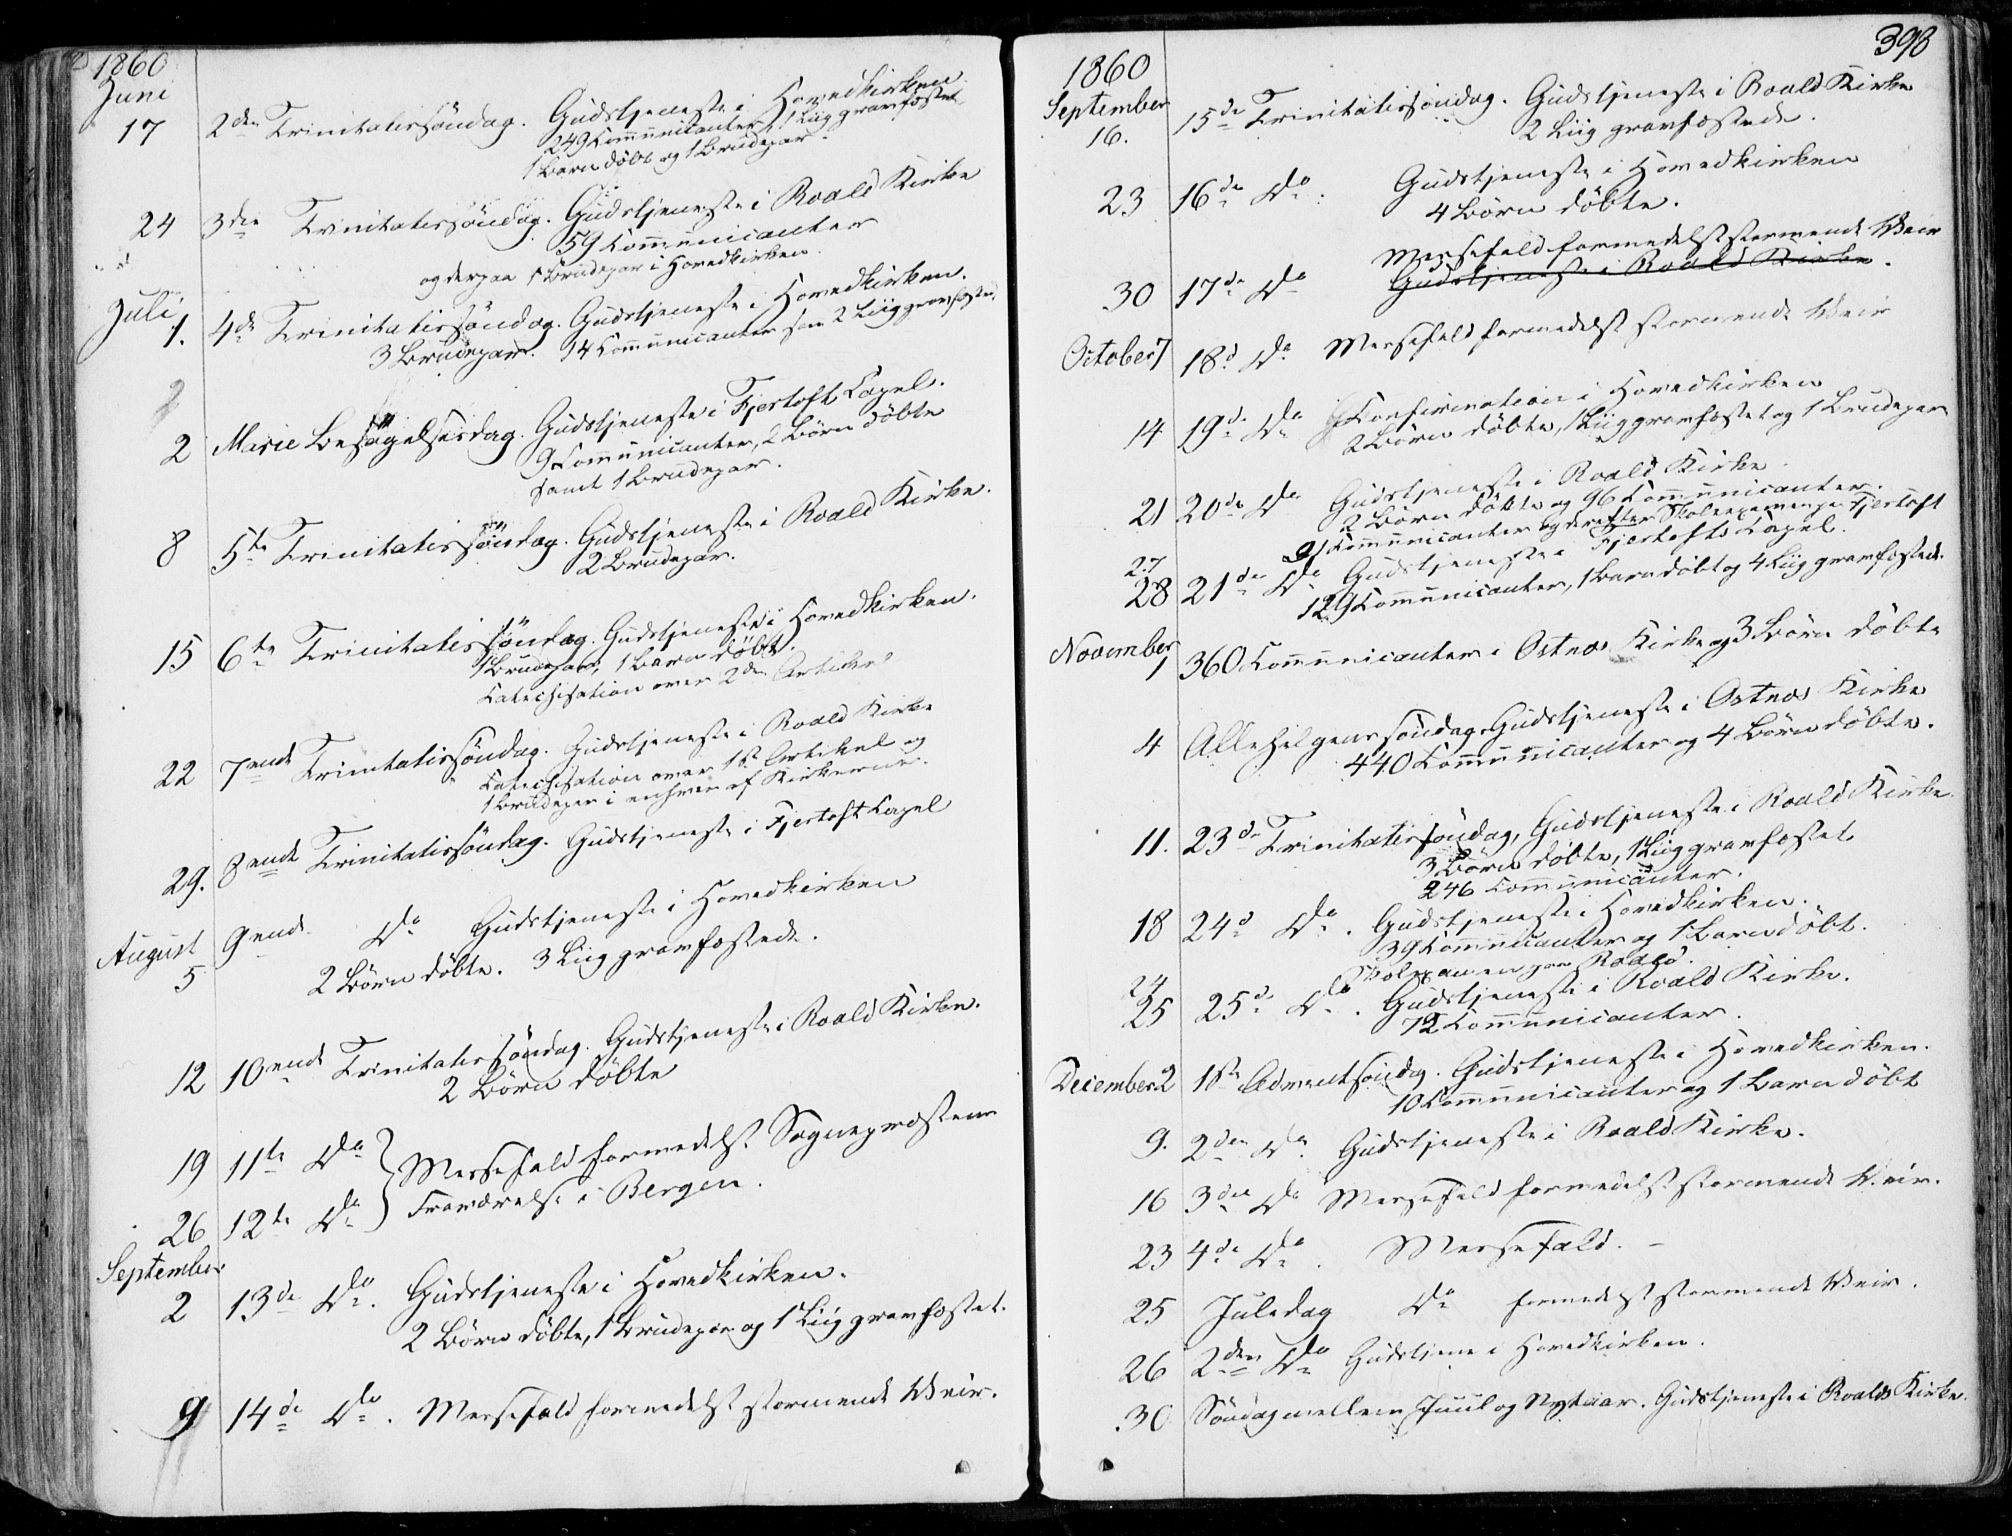 1860
Juni
17 2den Trinitatissöndag. Gudstjeneste i Hovedkirken
249 Communicanter, 1 Liig gravfæstet
1 Barn döbt og 1 Brudepar.
24 3die Trinitatissöndag. Gudstjeneste i Roald Kirke
59 Communicanter
og derpaa 1 Brudepar i Hovedkirken.
Juli
1. 4de Trinitatissöndag. Gudstjeneste i Hovedkirken.
3 Brudepar. 14 Communicanter 2 Liig gravfæstede
2 Marie Besögelsesdag. Gudstjeneste i Fjertoft Capel.
9 Communicanter, 2 Börn döbte
samt 1 Brudepar.
8 5te Trinitatissöndag. Gudstjeneste i Roald Kirke.
2 Brudepar.
15 6te Trinitatissöndag. Gudstjeneste i Hovedkirken.
1 Brudepar, 1 Barn döbt.
Catechisation over 2den Artikel
22 7ende Trinitatissöndag. Gudstjeneste i Roald Kirke
Catechisation over 1ste Artikel og
1 Brudepar i enhver af Kirkerne.
29. 8ende Trinitatissöndag. Gudstjeneste i Fjertoft Capel
August
5 9ende Do Gudstjeneste i Hovedkirken
2 Börn döbte. 3 Liig gravfæstede.
12 10ende Trinitatissöndag. Gudstjeneste i Roald Kirke.
2 Börn döbte
19 11te Do } Messefald formedelst Sognepræstens
26 12te Do } Fraværelse i Bergen.
September
2 13de Do. Gudstjeneste i Hovedkirken.
2 Börn döbte, 1 Brudepar og 1 Liig gravfæstet.
9 14de Do. Messefald formedelst stormende Veir.
398
1860
September
16. 15de Trinitatissöndag. Gudstjeneste i Roald Kirke
2 Liig gravfæstede.
23 16de Do. Gudstjeneste i Hovedkirken
4 Börn döbte.
Messefald formedelst stormende Veir
30 17de Do Gudstjeneste i Roald Kirke.
October 7 18d Do Messefald formedelst stormende Veir
14 19de Do Confirmation i Hovedkirken
2 Börn döbte, 1 Liig gravfæstet og 1 Brudepar
21 20de Do Gudstjeneste i Roald Kirke.
2 Börn döbte og 96 Communicanter.
27 91 Communicanter og derefter Skoleexamen paa Fjertoft
28 21de Do Gudstjeneste i Fjertofts Capel.
129 Communicanter, 1 Barn döbt og 4 Liig gravfæstede.
November
1 360 Communicanter i Ostnæs Kirke og 3 Börn döbte
4 Allehelgenssöndag. Gudstjeneste i Ostnæs Kirke
440 Communicanter og 4 Börn döbte.
11. 23de Trinitatissöndag, Gudstjeneste i Roald Kirke.
3 Börn döbte, 1 Liig gravfæstet
246 Communicanter.
18 24d Do. Gudstjeneste i Hovedkirken.
39 Communicanter og 1 Barn döbt.
24 Skolexamen paa Roald.
25 25d Do. Gudstjeneste i Roald Kirke.
72 Communicanter.
December 2 1ste Adventsöndag. Gudstjeneste i Hovedkirken.
10 Communicanter og 1 Barn döbt
9. 2den Do. Gudstjeneste i Roald Kirke.
16 3die Do Messefald formedelst stormende Veir.
23 4de Do. Messefald. –
25 Juledag Do formedelst stormende Veir.
26 2den Do Gudstjene i Hovedkirken.
30 Söndag mellem Juul og Nytaar. Gudstjeneste i Roalds Kirke.